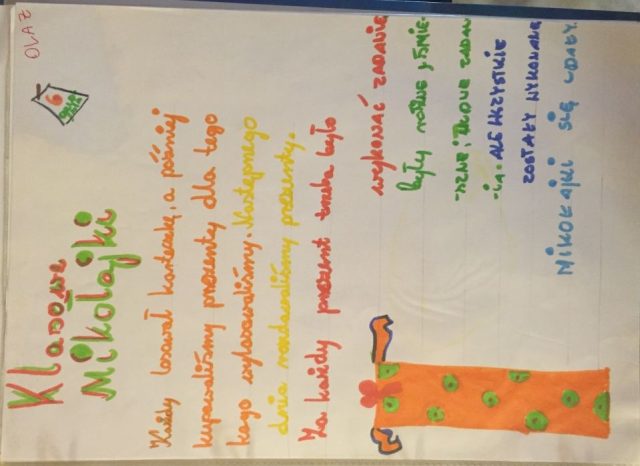 OLA Z
6
Klasowe
Mikołajki
Każdy losował karteczkę, a później
kupowaliśmy prezenty dla tego
kogo wylosowaliśmy. Następnego
dnia rozdawaliśmy prezenty.
Za każdy prezent trzeba było
wykonać zadanie
były różne, śmie-
-szne, zada
-ia. ALE WSZYSTKIE
ZOSTAŁY WYKONANE
MIKOŁAJKI SIĘ UDAŁY.